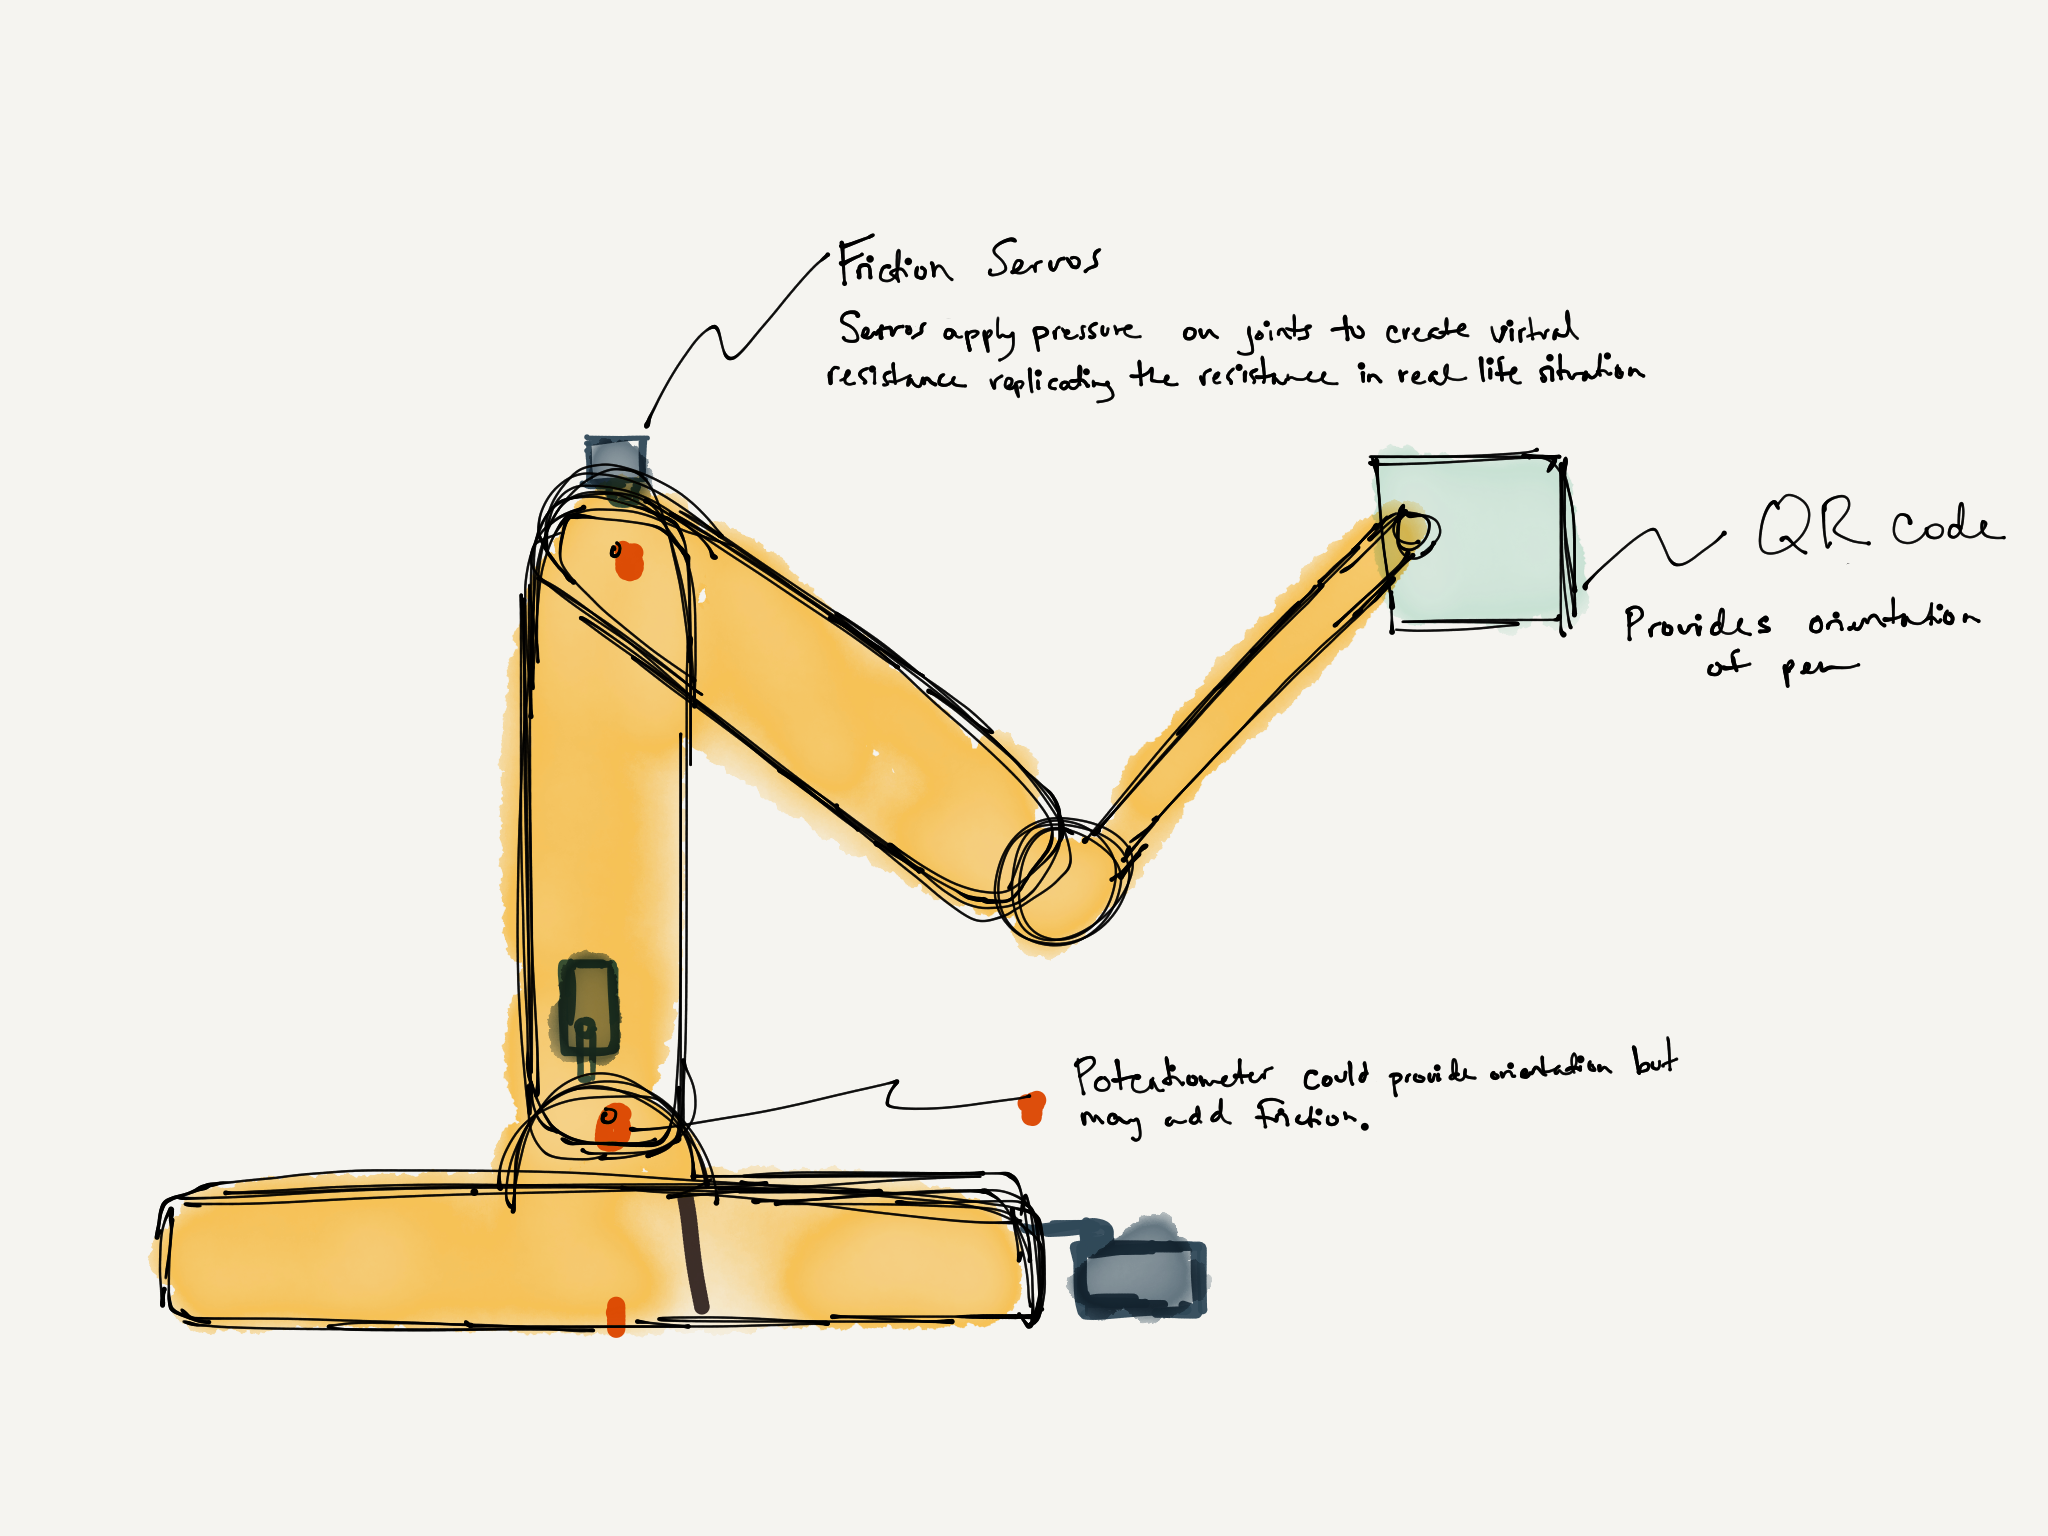 Friction Servos
Servos apply pressure on joints to create virtual
resistance replicating the resistance in real life situation
QR code
Provides orientation
of pen
Potentiometer could provide orientation but
may add friction.